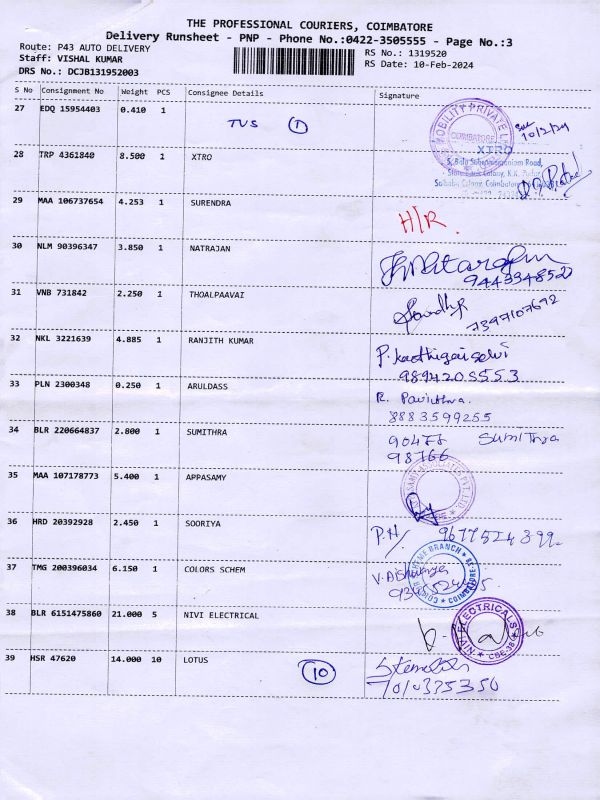 THE PROFESSIONAL COURIERS, COIMBATORE
Delivery Runsheet - PNP - Phone No.:0422-3505555 - Page No.:3
Route: P43 AUTO DELIVERY
RS No.: 1319520
Staff: VISHAL KUMAR
RS Date: 10-Feb-2024
DRS No.: DCJB131952003
S No Consignment No Weight PCS Consignee Details Signature
27 EDQ 15954403 0.410 1
TVS 1
10/2/24
COIMBATORE
28 TRP 4361840 8.500 1 XTRO
XTRO
State Bank Colony, K.K. Pudur
29 MAA 106737654 4.253 1 SURENDRA
H/R.
30 NLM 90396347 3.850 1 NATRAJAN
31 VNB 731842 2.250 1 THOALPAAVAI
7397107692
32 NKL 3221639 4.885 1 RANJITH KUMAR
P. Kaathigaiselvi
9894205553
33 PLN 2300348 0.250 1 ARULDASS
R. Pavithra.
8883599255
34 BLR 220664837 2.800 1 SUMITHRA
90477 SUMITHRA
98766
35 MAA 107178773 5.400 1 APPASAMY
36 HRD 20392928 2.450 1 SOORIYA
P.H/ 9677524399
37 TMG 200396034 6.150 1 COLORS SCHEM
38 BLR 6151475860 21.000 5 NIVI ELECTRICAL
NIVI ELECTRICALS
39 HSR 47620 14.000 10 LOTUS
10
7010335350